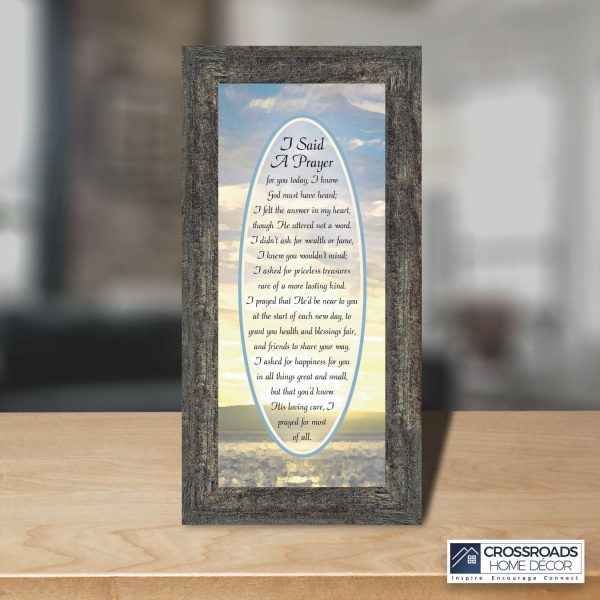 I Said
A Prayer
for you today, I know
God must have heard;
I felt the answer in my heart,
though He uttered not a word.
I didn't ask for wealth or fame,
I knew you wouldn't mind;
I asked for priceless treasures
rare of a more lasting kind.
I prayed that He'd be near to you
at the start of each new day, to
grant you health and blessings fair,
and friends to share your way.
I asked for happiness for you
in all things great and small,
but that you'd know
His loving care, I
prayed for most
of all.
CROSSROADS
HOME DÉCOR
Inspire Encourage Connect